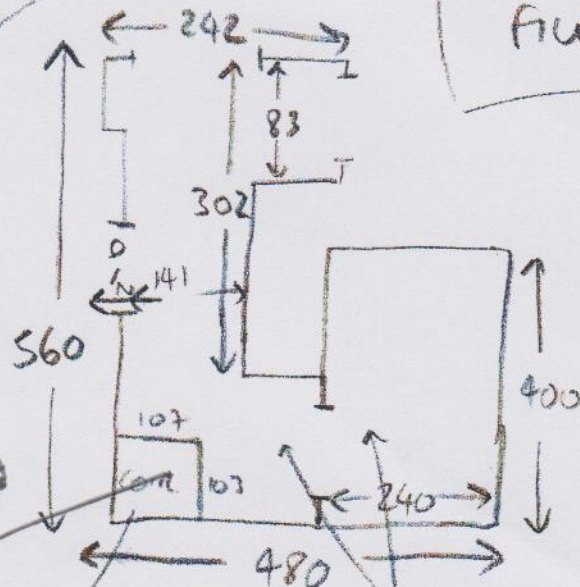 242
83
302
D
141
560
400
107
103
240
480